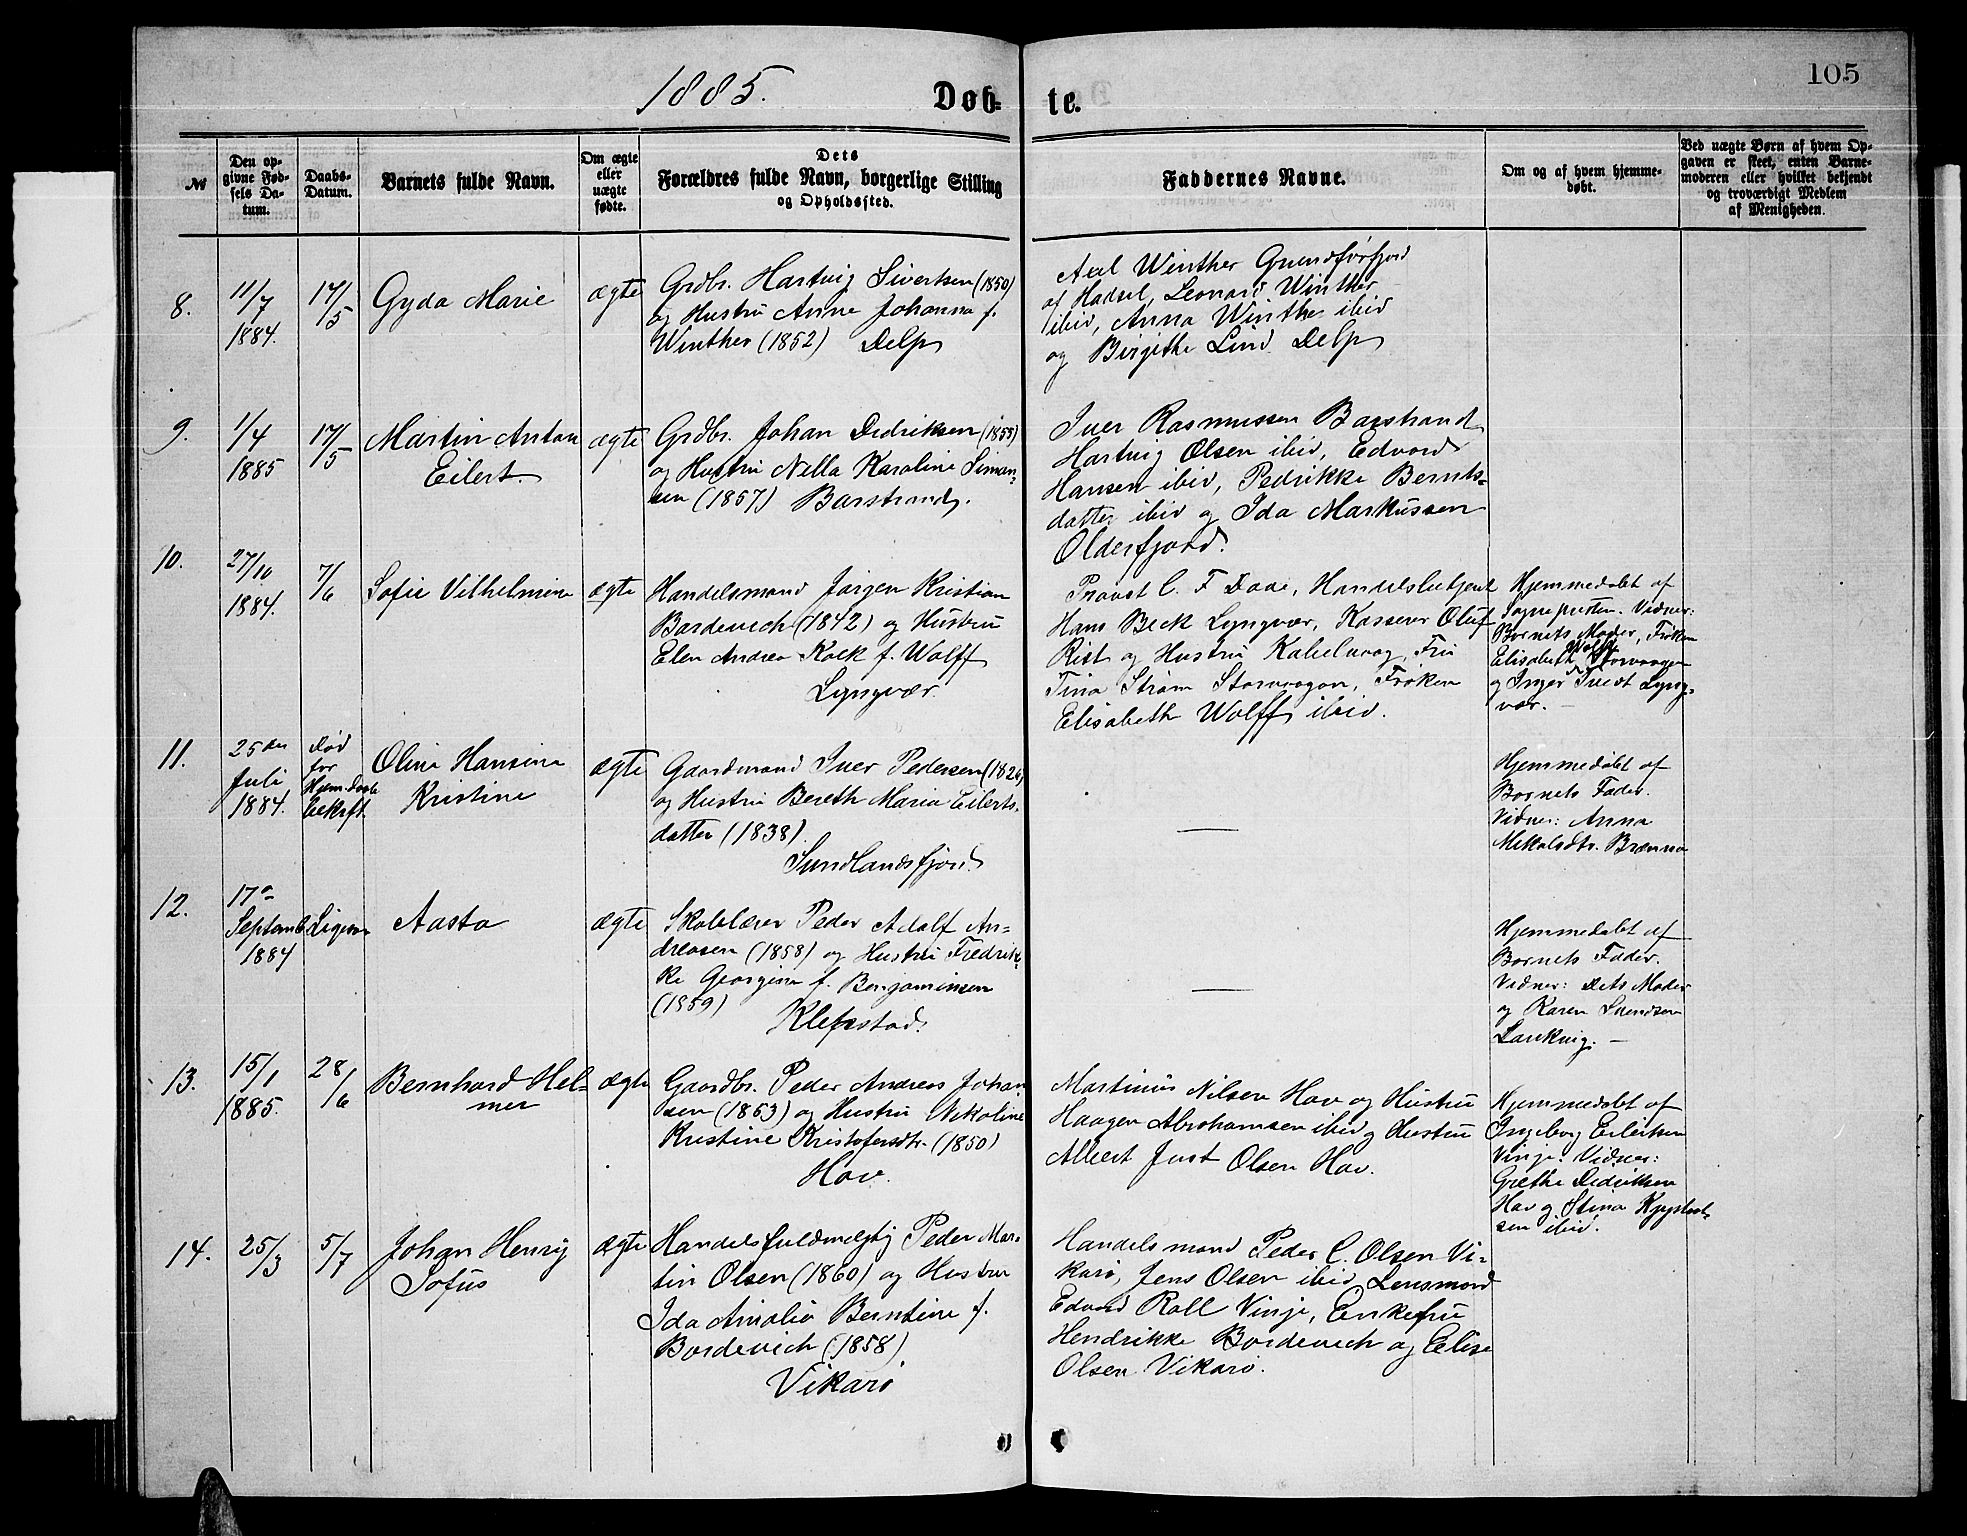 1885.
Dob-
te.
105
№
Den op-
givne Fød-
sels Da-
tum.
Daabs-
Datum.
Barnets fulde Navn.
Om ægte
eller
uægte
fødte.
Dets
Forældres fulde Navn, borgerlige Stilling
og Opholdssted.
Faddernes Navne.
Om og af hvem hjemme-
døbt.
Ved uægte Børn af hvem Op-
gaven er skeet, enten Barne-
moderen eller hvilket bekjendt
og troværdigt Medlem
af Menigheden.
8.
11/7
1884.
17/5
Gyda Marie
ægte
Grdbr. Hartvig Sivertsen (1850)
og Hustru Anne Johanna f.
Winther (1852) Delp
Axl Winther Grundførfjord
af Hadsel, Leonard Winther
ibid, Anna Winther ibid
og Birgithe Lind Delp
9.
1/4
1885
17/5
Martin Anton
Eilert.
ægte
Grdbr. Johan Didriksen
og Hustru Nella Karoline Simon-
sen (1857) Barstrand.
Iver Rasmussen Barstrand
Hartvig Olsen ibid, Edvard
Hansen ibid, Pedrikke Bernts-
datter ibid og Ida Markussen
Olderfjord.
10.
27/10
1884.
7/6
Sofie Vilhelmine
ægte
Handelsmand Jørgen Kristian
Bordevich (1842) og Hustru
Elen Andrea Kolk f. Wolff
Lyngvær.
Provst C. F. Daae, Handelsbetjent
Hans Beck Lyngvær, Kasserer Oluf
Rist og Hustru Kabelvaag, Fru
Tina Strøm Storvaagan, Frøken
Elisabeth Wolff ibid.
Hjemmedøbt af
Sognepresten. Vidner:
Barnets Moder, Frøken
Elisabeth Wolff Storvaagen
og Inger Tvedt Lyng-
vær. —
11.
25de
Juli
1884.
Død
før
Hjem.Daab
Bekrft.
Oline Hansine
Kristine
ægte
Gaardmand Iver Pedersen (1826)
og Hustru Bereth Maria Eilerts-
datter (1838).
Sundlandsfjord
—
Hjemmedøbt af
Barnets Fader.
Vidner: Anna
Mikalsdtr. Brenna
12.
17de
Septemb
1884
Ligesom
Aasta
ægte
Skolelærer Peder Adolf An-
dreasen (1858) og Hustru Fredrik-
ke Georgine f. Benjaminsen
(1859)
Klepstad.
—
Hjemmedøbt af
Barnets Fader.
Vidner: Dets Moder
og Karen Svendsen
Laukvig. —
13.
15/1
1885.
28/6
Bernhard Hel-
mer
ægte
Gaardbr. Peder Andreas Johan
sen (1853) og Hustru Nikoline
Kristine Kristofersdtr. (1850)
Hov.
Martinus Nilsen Hov og Hustru
Haagen Abrahamsen ibid og Hustru
Albert Just Olsen Hov.
Hjemmedøbt af
Ingeborg Eilertsen
Vinje. Vidner:
Grethe Didriksen
Hov og Stina
sen ibid.
14.
25/3
5/7
Johan Henrig
Sofus
ægte
Handelsfuldmegtig Peder Mar-
tin Olsen (1860) og Hustru
Ida Amalia Berntine f.
Bordevich (1858)
Vikarø
Handelsmand Peder C. Olsen Vi-
karø, Jens Olsen ibid, Lensmand
Edvard Rall Vinje, Enkefru
Hendrikke Bordevich og Elise
Olsen Vikarø.